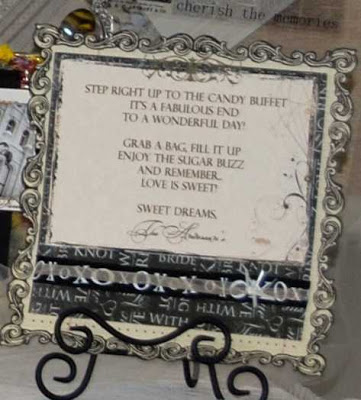 cherish the memories
STEP RIGHT UP TO THE CANDY BUFFET
IT'S A FABULOUS END
TO A WONDERFUL DAY!
GRAB A BAG, FILL IT UP
ENJOY THE SUGAR BUZZ
AND REMEMBER...
LOVE IS SWEET!
SWEET DREAMS,
The
KNOT
BRIDE
XOXOXOX
WITH
WITH